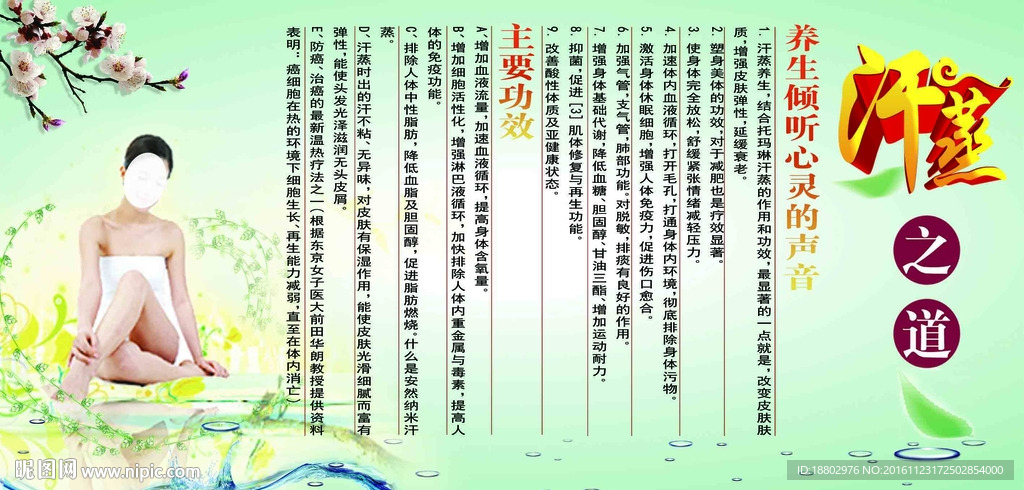 汗蒸
之道
养生倾听心灵的声音
1. 汗蒸养生，结合托玛琳汗蒸的作用和功效，最显著的一点就是，改变皮肤肤
质，增强皮肤弹性，延缓衰老。
2. 塑身美体的功效，对于减肥也是疗效显著。
3. 使身体完全放松，舒缓紧张情绪减轻压力。
4. 加速体内血液循环，打开毛孔，打通身体内环境，彻底排除身体污物。
5. 激活身体休眠细胞，增强人体免疫力，促进伤口愈合。
6. 加强气管，支气管，肺部功能。对脱敏，排痰有良好的作用。
7. 增强身体基础代谢，降低血糖、胆固醇、甘油三酯、增加运动耐力。
8. 抑菌，促进【3】肌体修复与再生功能。
9. 改善酸性体质及亚健康状态。
主要功效
A、增加血液流量，加速血液循环，提高身体含氧量。
B、增加细胞活性化，增强淋巴液循环，加快排除人体内重金属与毒素，提高人
体的免疫功能。
C、排除人体中性脂肪，降低血脂及胆固醇，促进脂肪燃烧。什么是安然纳米汗
蒸。
D、汗蒸时出的汗不粘、无异味，对皮肤有保湿作用，能使皮肤光滑细腻而富有
弹性，能使头发光泽滋润无头皮屑。
E、防癌、治癌的最新温热疗法之一（根据东京女子医大前田华朗教授提供资料
表明：癌细胞在热的环境下细胞生长、再生能力减弱，直至在体内消亡）
昵图网 www.nipic.com
ID:18802976 NO:20161123172502854000